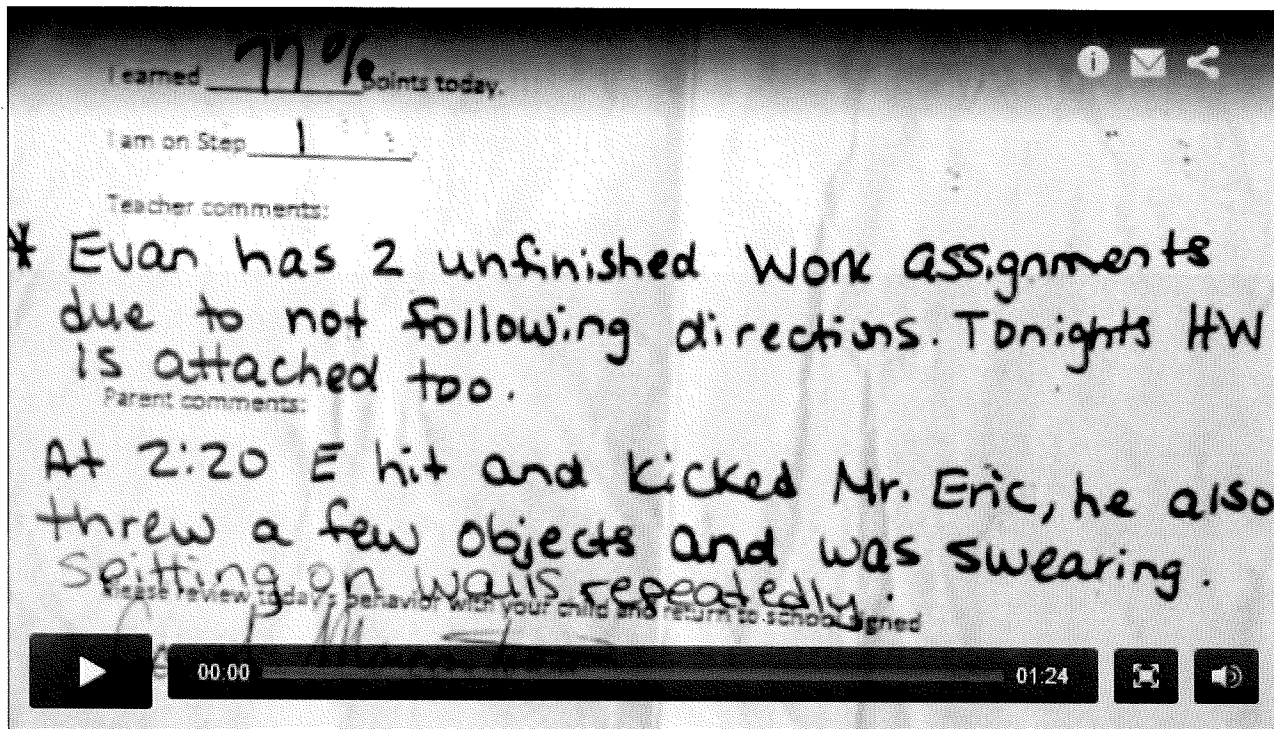 I earned 77% points today.
I am on Step 1
Teacher comments:
* Evan has 2 unfinished work assignments
due to not following directions. Tonights HW
is attached too.
Parent comments:
At 2:20 E hit and kicked Mr. Eric, he also
threw a few objects and was swearing.
Spitting on walls repeatedly.
Please review today's behavior with your child and return to school signed
00:00
01:24